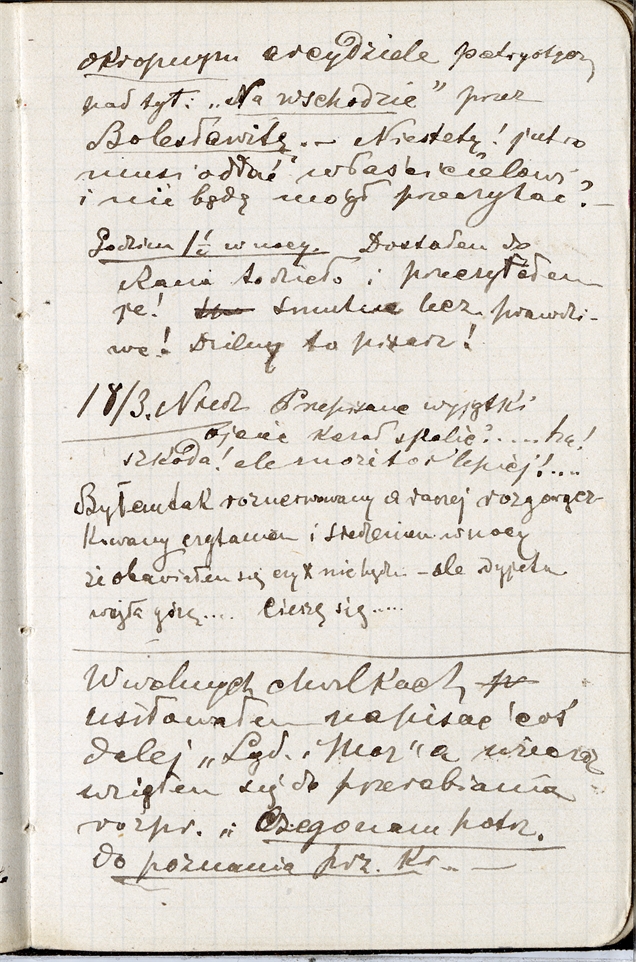 okropnym arcydziele patryotycz
pod tyt: „Na wschodzie” przez
Bolesławitę. – Niestety! jutro
musi oddać właścicielowi
i nie będę mógł przeczytać? –
Godzina 1½ w nocy. Dostałem do
rana to dzieło i przeczytałem
je! smutne lecz prawdzi-
we! Dzielny to pisarz!
18/3. Niedz Przepisane wyjątki
ojciec kazał spalić..... ha!
szkoda! ale może to i lepiej!....
Byłem tak roznerwowany a raczej rozgorącz-
kowany czytaniem i siedzeniem w nocy
że obawiałem się czy X nie będzie – ale
wzięła górę.... Cieszę się.....
W wolnych chwilkach
usiłowałem napisać coś
dalej „Lyd. i Mar” a
wziąłem się do przerabiania
rozpr. „: Czego nam potrz.
do poznania prz. Kr. . –